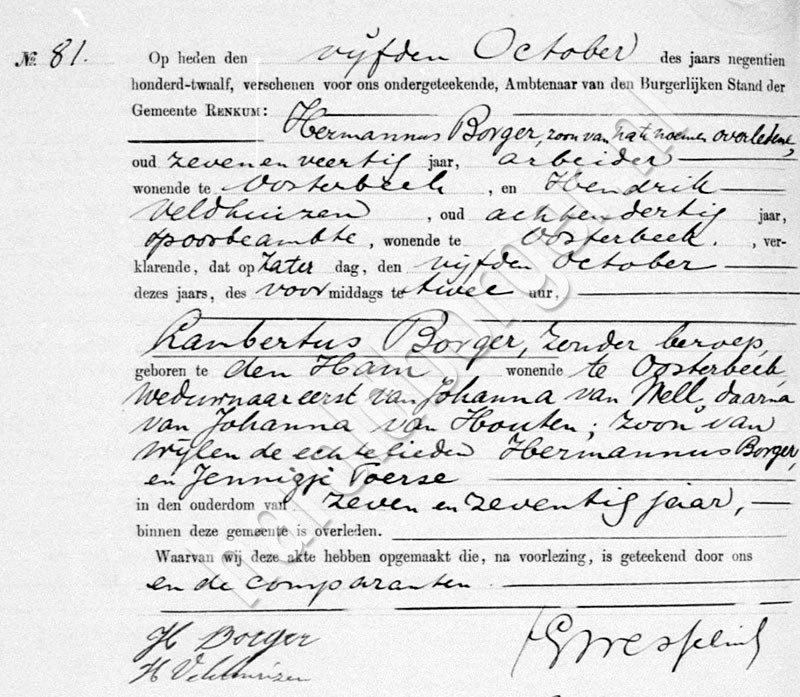 № 81. Op heden den vijfden October des jaars negentien
honderd-twaalf, verschenen voor ons ondergeteekende, Ambtenaar van den Burgerlijken Stand der
Gemeente RENKUM:
Hermannus Borger, zoon van na te noemen overledene,
oud zeven en veertig jaar, arbeider
wonende te Oosterbeek, en Hendrik
Veldhuizen, oud acht en dertig jaar,
spoorbeambte, wonende te Oosterbeek., ver-
klarende, dat op Zater dag, den vijfden October
dezes jaars, des voor middags te twee uur,
Lambertus Borger, zonder beroep,
geboren te den Ham wonende te Oosterbeek,
weduwnaar eerst van Johanna van Nell, daarna
van Johanna van Houten; zoon van
wijlen de echtelieden Hermannus Borger,
en Jennigje Toerse
in den ouderdom van zeven en zeventig jaar,
binnen deze gemeente is overleden.
Waarvan wij deze akte hebben opgemaakt die, na voorlezing, is geteekend door ons
en de comparanten.
H Borger
H Veldhuizen